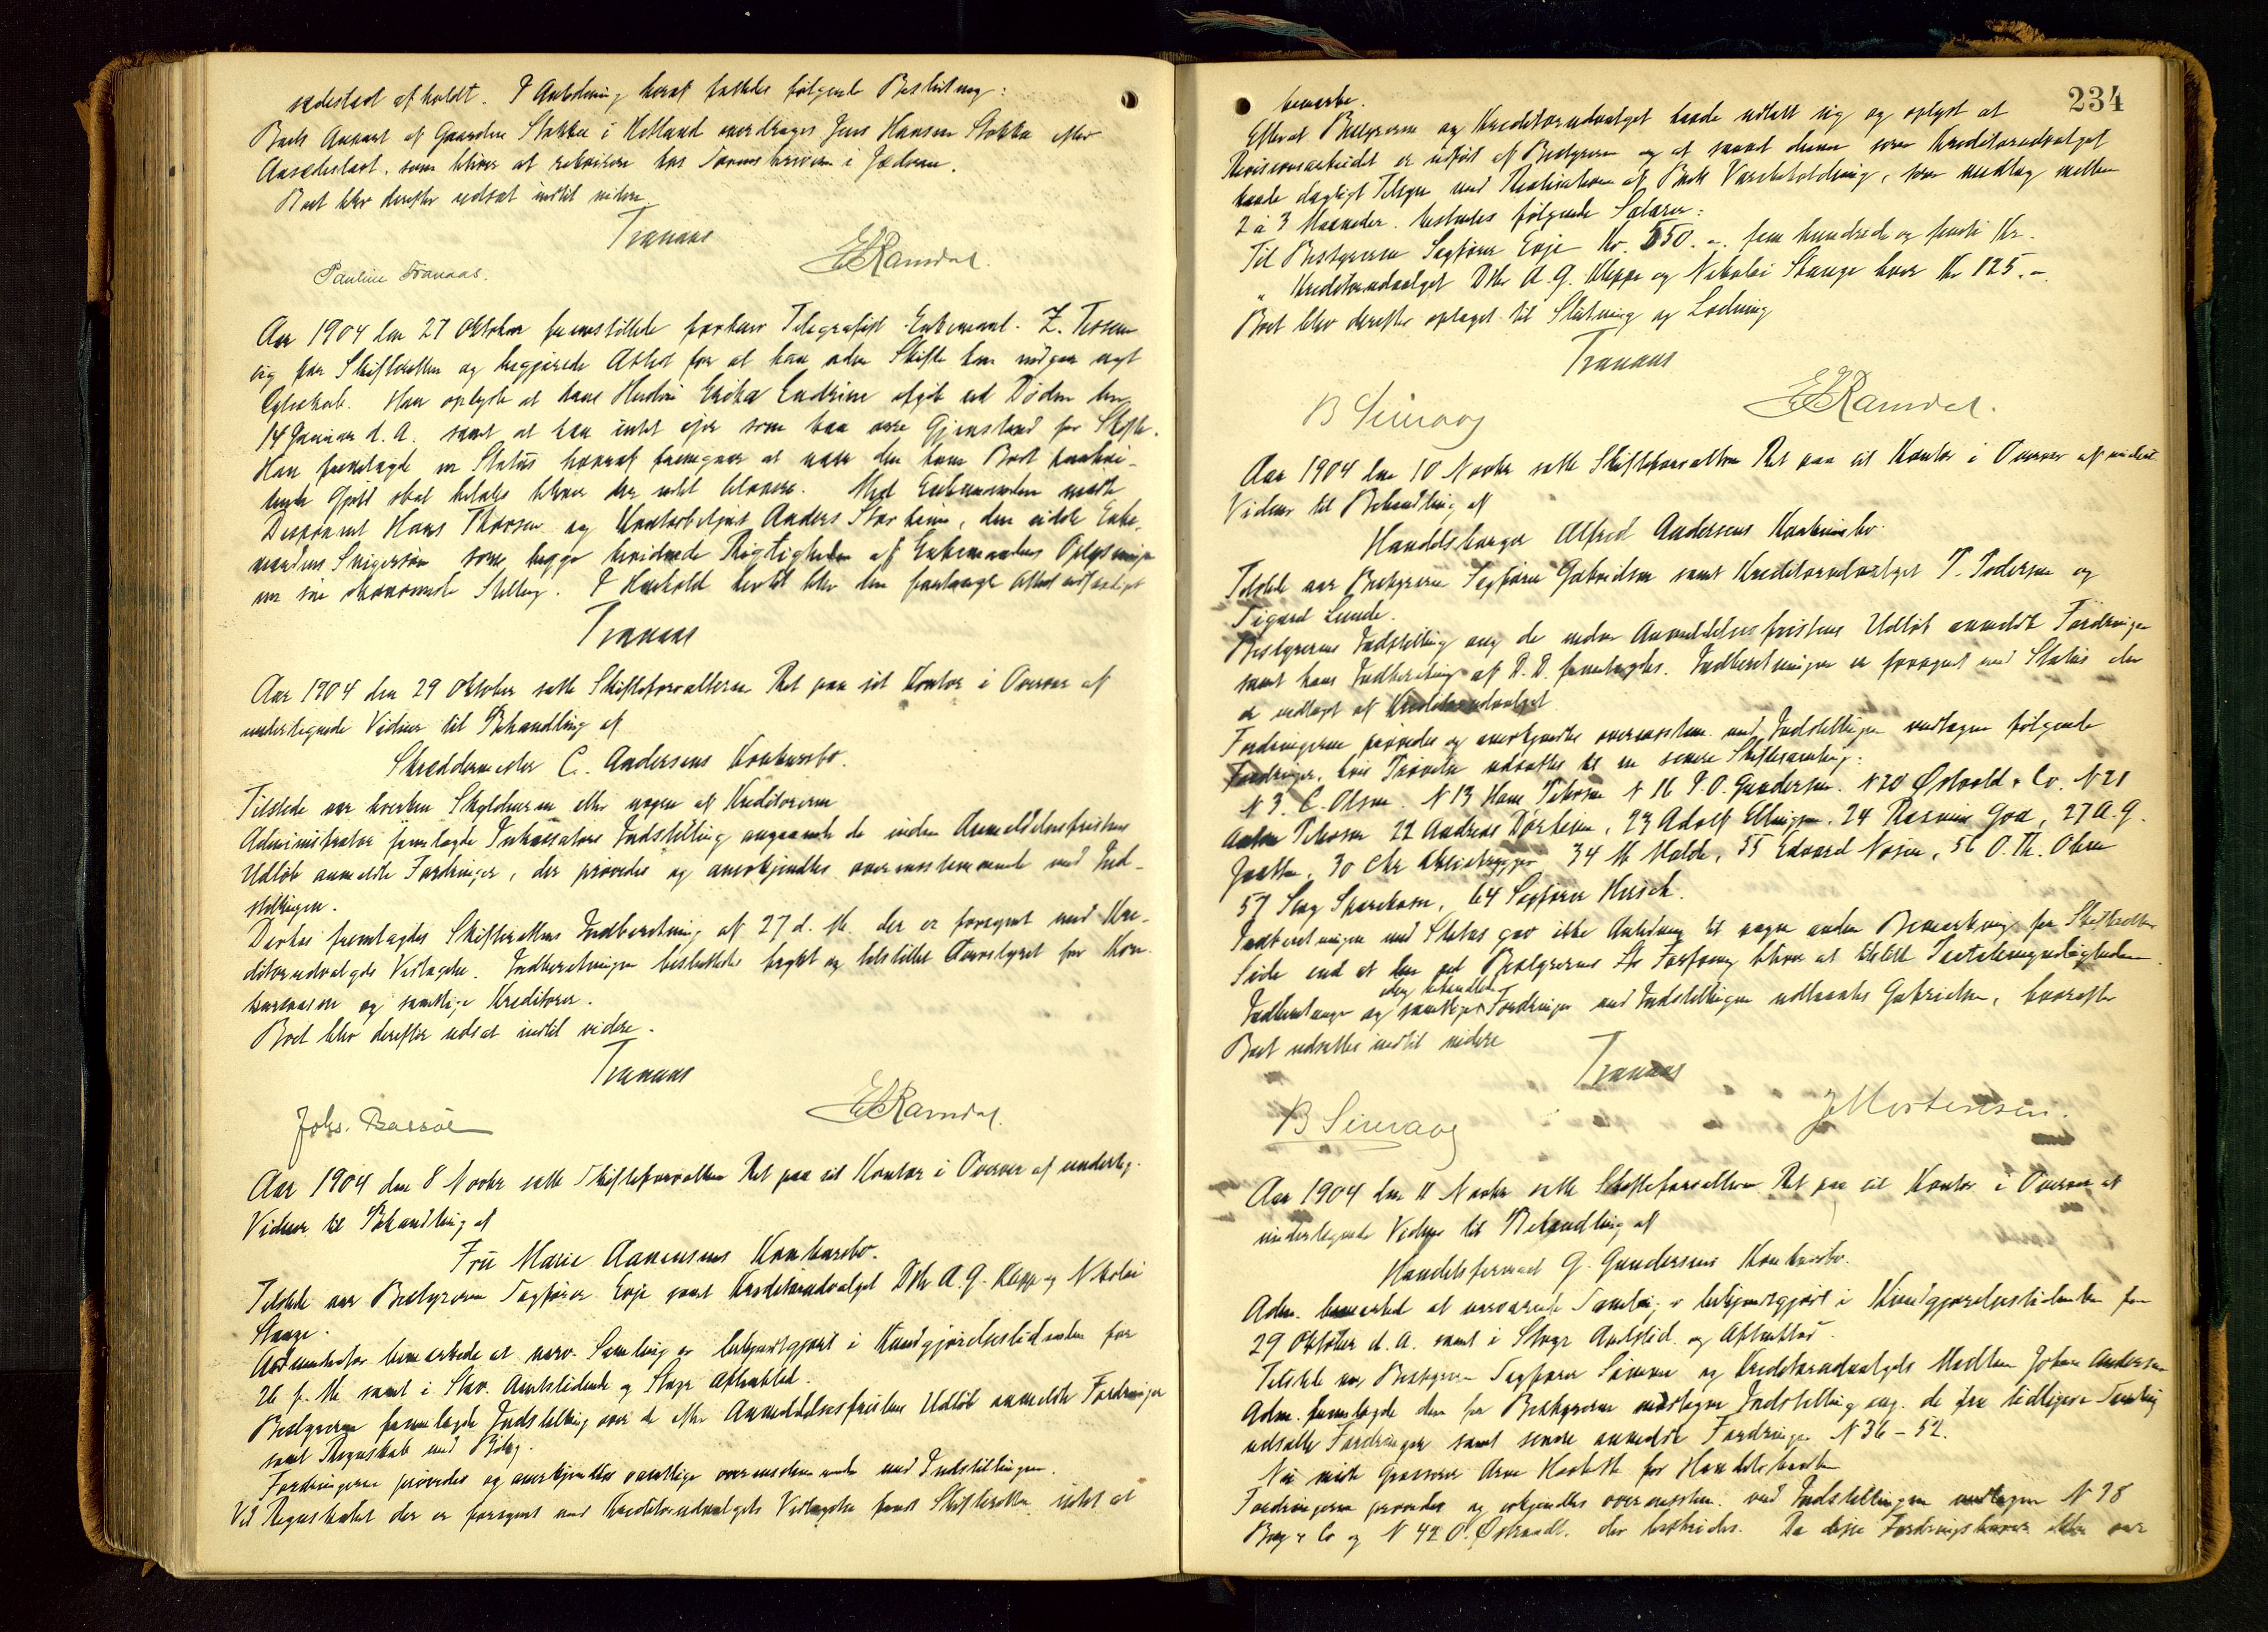 aadestad afholdt. I Anledning heraf fattedes følgende Beslutning:
Boets Anpart af Gaarden Stokka i Hetland overdrages Jens Hansen Stokka efter
Aasædestaxt, som bliver at rekvirere hos Sorenskriveren i Jæderen.
Boet blev derefter udsat indtil videre.
Tranaas
Pauline Tranaas. E Ramdal.
Aar 1904 den 27 Oktober fremstillede forhenv Telegrafist Enkemand Z. Tessem
sig for Skifteretten og begjærede Attest for at han uden Skifte kan indgaa nyt
Egteskab. Han oplyste at hans Hustru Erika Endrine afgik ved Døden den
14 Januar d. A. samt at han intet ejer som kan være Gjenstand for Skifte.
Han fremlagde en Status hvoraf fremgaar at naar den hans Bo paahvi-
lende Gjæld skal betales bliver der intet tilovers. Med Enkemanden mødte
Disponent Hans Thorsen og Kontorbetjent Anders Storheim, den sidste Enke-
mandens Svigersøn som begge bevidnede Rigtigheden af Enkemandens Oplysninger
om sin økonomiske Stilling. I Henhold hertil blev den forlangte Attest udfærdiget
Tranaas
Aar 1904 den 29 Oktober satte Skifteforvalteren Ret paa sit Kontor i Overvær af
undertegnede Vidner til Behandling af
Skræddermester C. Andersens Konkursbo.
Tilstede var hverken Skyldneren eller nogen af Kreditorerne
Administrator fremlagde Inkassators Indstilling angaaende de inden Anmeldelsesfristens
Udløb anmeldte Fordringer, der prøvedes og anerkjendtes overensstemmende med Ind-
stillingen.
Derhos fremlagdes Skifterettens Indberetning af 27 d. M. der er forsynet med Kre-
ditorudvalgets Vedtagelse. Indberetningen besluttedes trykt og tilstillet for Kon-
kursvæsen og samtlige Kreditorer.
Boet blev derefter udsat indtil videre.
Tranaas
Johs. Bassøe E Ramdal.
Aar 1904 den 8 Novbr satte Skifteforvalteren Ret paa sit Kontor i Overvær af underteg.
Vidner til Behandling af
Fru Marie Aanensens Konkursbo.
Tilstede var Bestyreren Sagfører Evje samt Kreditorudvalget Dhr A. G. Kleppe og Nikolai
Stange.
Administrator bemærkede at nærv. Samling er bekjendtgjort i Kundgjørelsestidende for
26 f. M. samt i Stav. Amtstidende og Stvgr Aftenblad.
Bestyreren fremlagde Indstilling over de efter Anmeldelsesfristens Udløb anmeldte Fordringer
samt Regnskab med Bilag.
Fordringerne prøvedes og anerkjendtes samtlige overensstemmende med Indstillingen.
Ved Regnskabet der er forsynet med Kreditorudvalgets Vedtagelse fandt Skifteretten intet at
234
bemærke.
Efterat Bestyreren og Kreditorudvalget havde udtalt sig og oplyst at
Revisionsarbeidet er udført af Bestyreren og at saavel denne som Kreditorudvalget
havde dagligt Tilsyn med Realisationen af Boets Varebeholdning, som medtog mellem
2 à 3 Maaneder, bestemtes følgende Salærer:
Til Bestyreren Sagfører Evje Kr. 550.-. fem hundrede og femti Kr.
" Kreditorudvalget Dhr A. G. Kleppe og Nikolai Stange hver Kr 125.-
Boet blev derefter optaget til Slutning og Lodning
Tranaas
B Simaag E Ramdal.
Aar 1904 den 10 Novbr satte Skifteforvalteren Ret paa sit Kontor i Overvær af undert
Vidner til Behandling af
Handelsborger Alfred Andersens Konkursbo.
Tilstede var Bestyreren Sagfører Gabrielsen samt Kreditorudvalget T. Pedersen og
Sigurd Lunde.
Bestyrerens Indstilling ang. de inden Anmeldelsesfristens Udløb anmeldte Fordringer
samt hans Indberetning af D. D. fremlagdes. Indberetningen er forsynet med Status der
er vedtaget af Kreditorudvalget.
Fordringerne prøvedes og anerkjendtes overensstem. med Indstillingen undtagen følgende
Fordringer, hvis Prøvelse udsattes til en senere Skiftesamling:
N 3. C. Olsen. N 13 Hans Petersen N 16 P. O. Gundersen. N 20 Østvold & Co. N 21
Anton Petersen 22 Andreas Dørheim, 23 Adolf Ellingsen, 24 Rasmus Goa, 27 A. G.
Jaatten, 30 Chr 34 M Molde, 55 Edvard Nøsen, 56 O. Th. Olsen
57 Stvg Sparekasse, 64 Sagfører Hirsch.
Indberetningen med Status gav ikke Anledning til nogen anden Bemærkning fra Skifteretten
Side end at den ved Bestyrerens Forføining bliver at tilstille Paatalemyndigheden.
Indberetningen og samtlige behandlede Fordringer med Indstillingen udlaantes Gabrielsen, hvorefter
Boet udsattes indtil videre
Tranaas
B Simaag J Mortensen.
Aar 1904 den 11 Novbr satte Skifteforvalteren Ret paa sit Kontor i Overvær af
undertegnede Vidner til Behandling af
Handelsfirmaet G. Gundersens Konkursbo.
Adm. bemærked at nærværende Samling er bekjendtgjort i Kundgjørelsestidenden for
29 Oktober d. A. samt i Stvgr Amtstid. og Aftenblad.
Tilstede var Bestyreren Sagfører Sømme og Kreditorudvalgets Medlem Johan Andersen
Adm. fremlagde den fra Bestyreren modtagne Indstilling ang. de fra tidligere Samling
udsatte Fordringer samt senere anmeldte Fordringer N 36 - 52.
Nu mødte Grosserer Arne Haabeth for Handelsbanken
Fordringerne prøvedes og erkjendtes overensstem. med Indstillingen undtagen N 38
Berg & Co og N 42 O. Østrandt. der bestrides. Da disse Fordringshavere ikke var